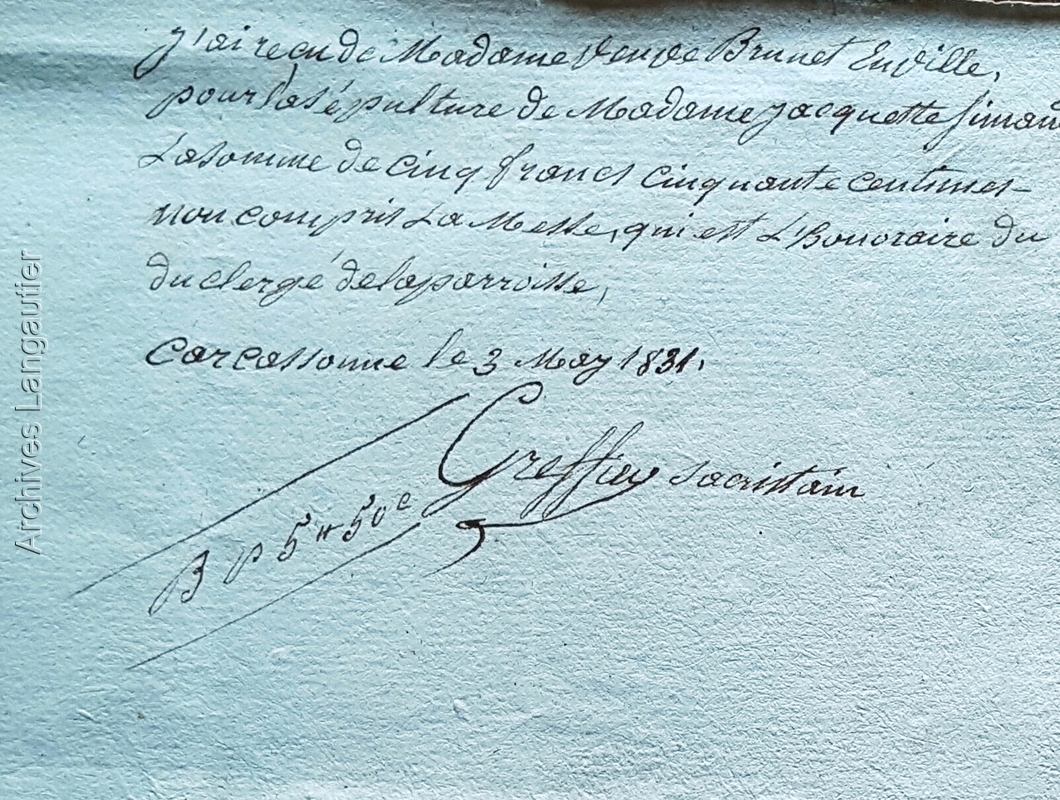 J'ai reçu de Madame Veuve Brunet En ville,
pour la sépulture de Madame Jacquette Simau
La somme de cinq francs cinquante centimes
non compris La Messe, qui est L'honoraire du
du clergé de la parroisse,
Carcassonne le 3 May 1831.
Greffier sacristain
B P 5 ₶ 50 c
Archives Langautier